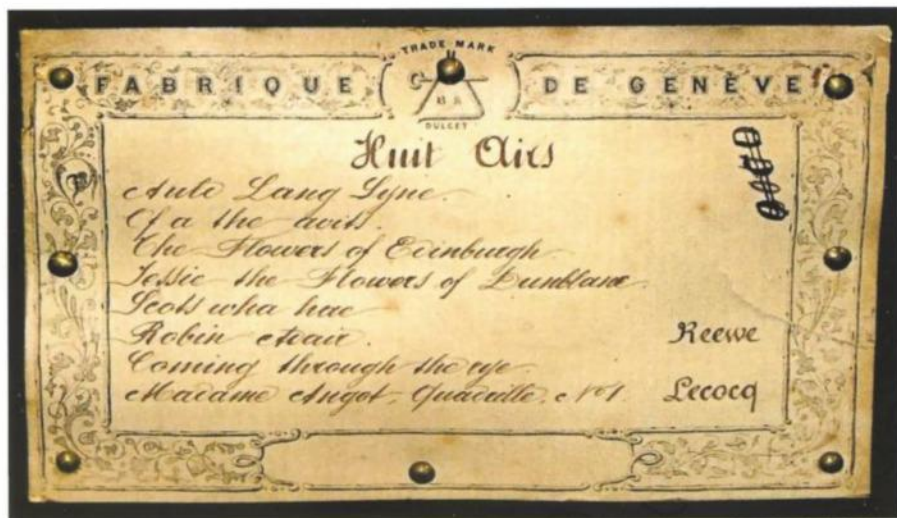 TRADE MARK
FABRIQUE DE GENÈVE
DULCET
Huit Airs
Auld Lang Syne
Of a the airts
The Flowers of Edinburgh
Jessie the Flowers of Dunblane
Scots wha hae
Robin Adair Reewe
Coming through the rye
Madame Angot, Quadrille, No 1 Lecocq